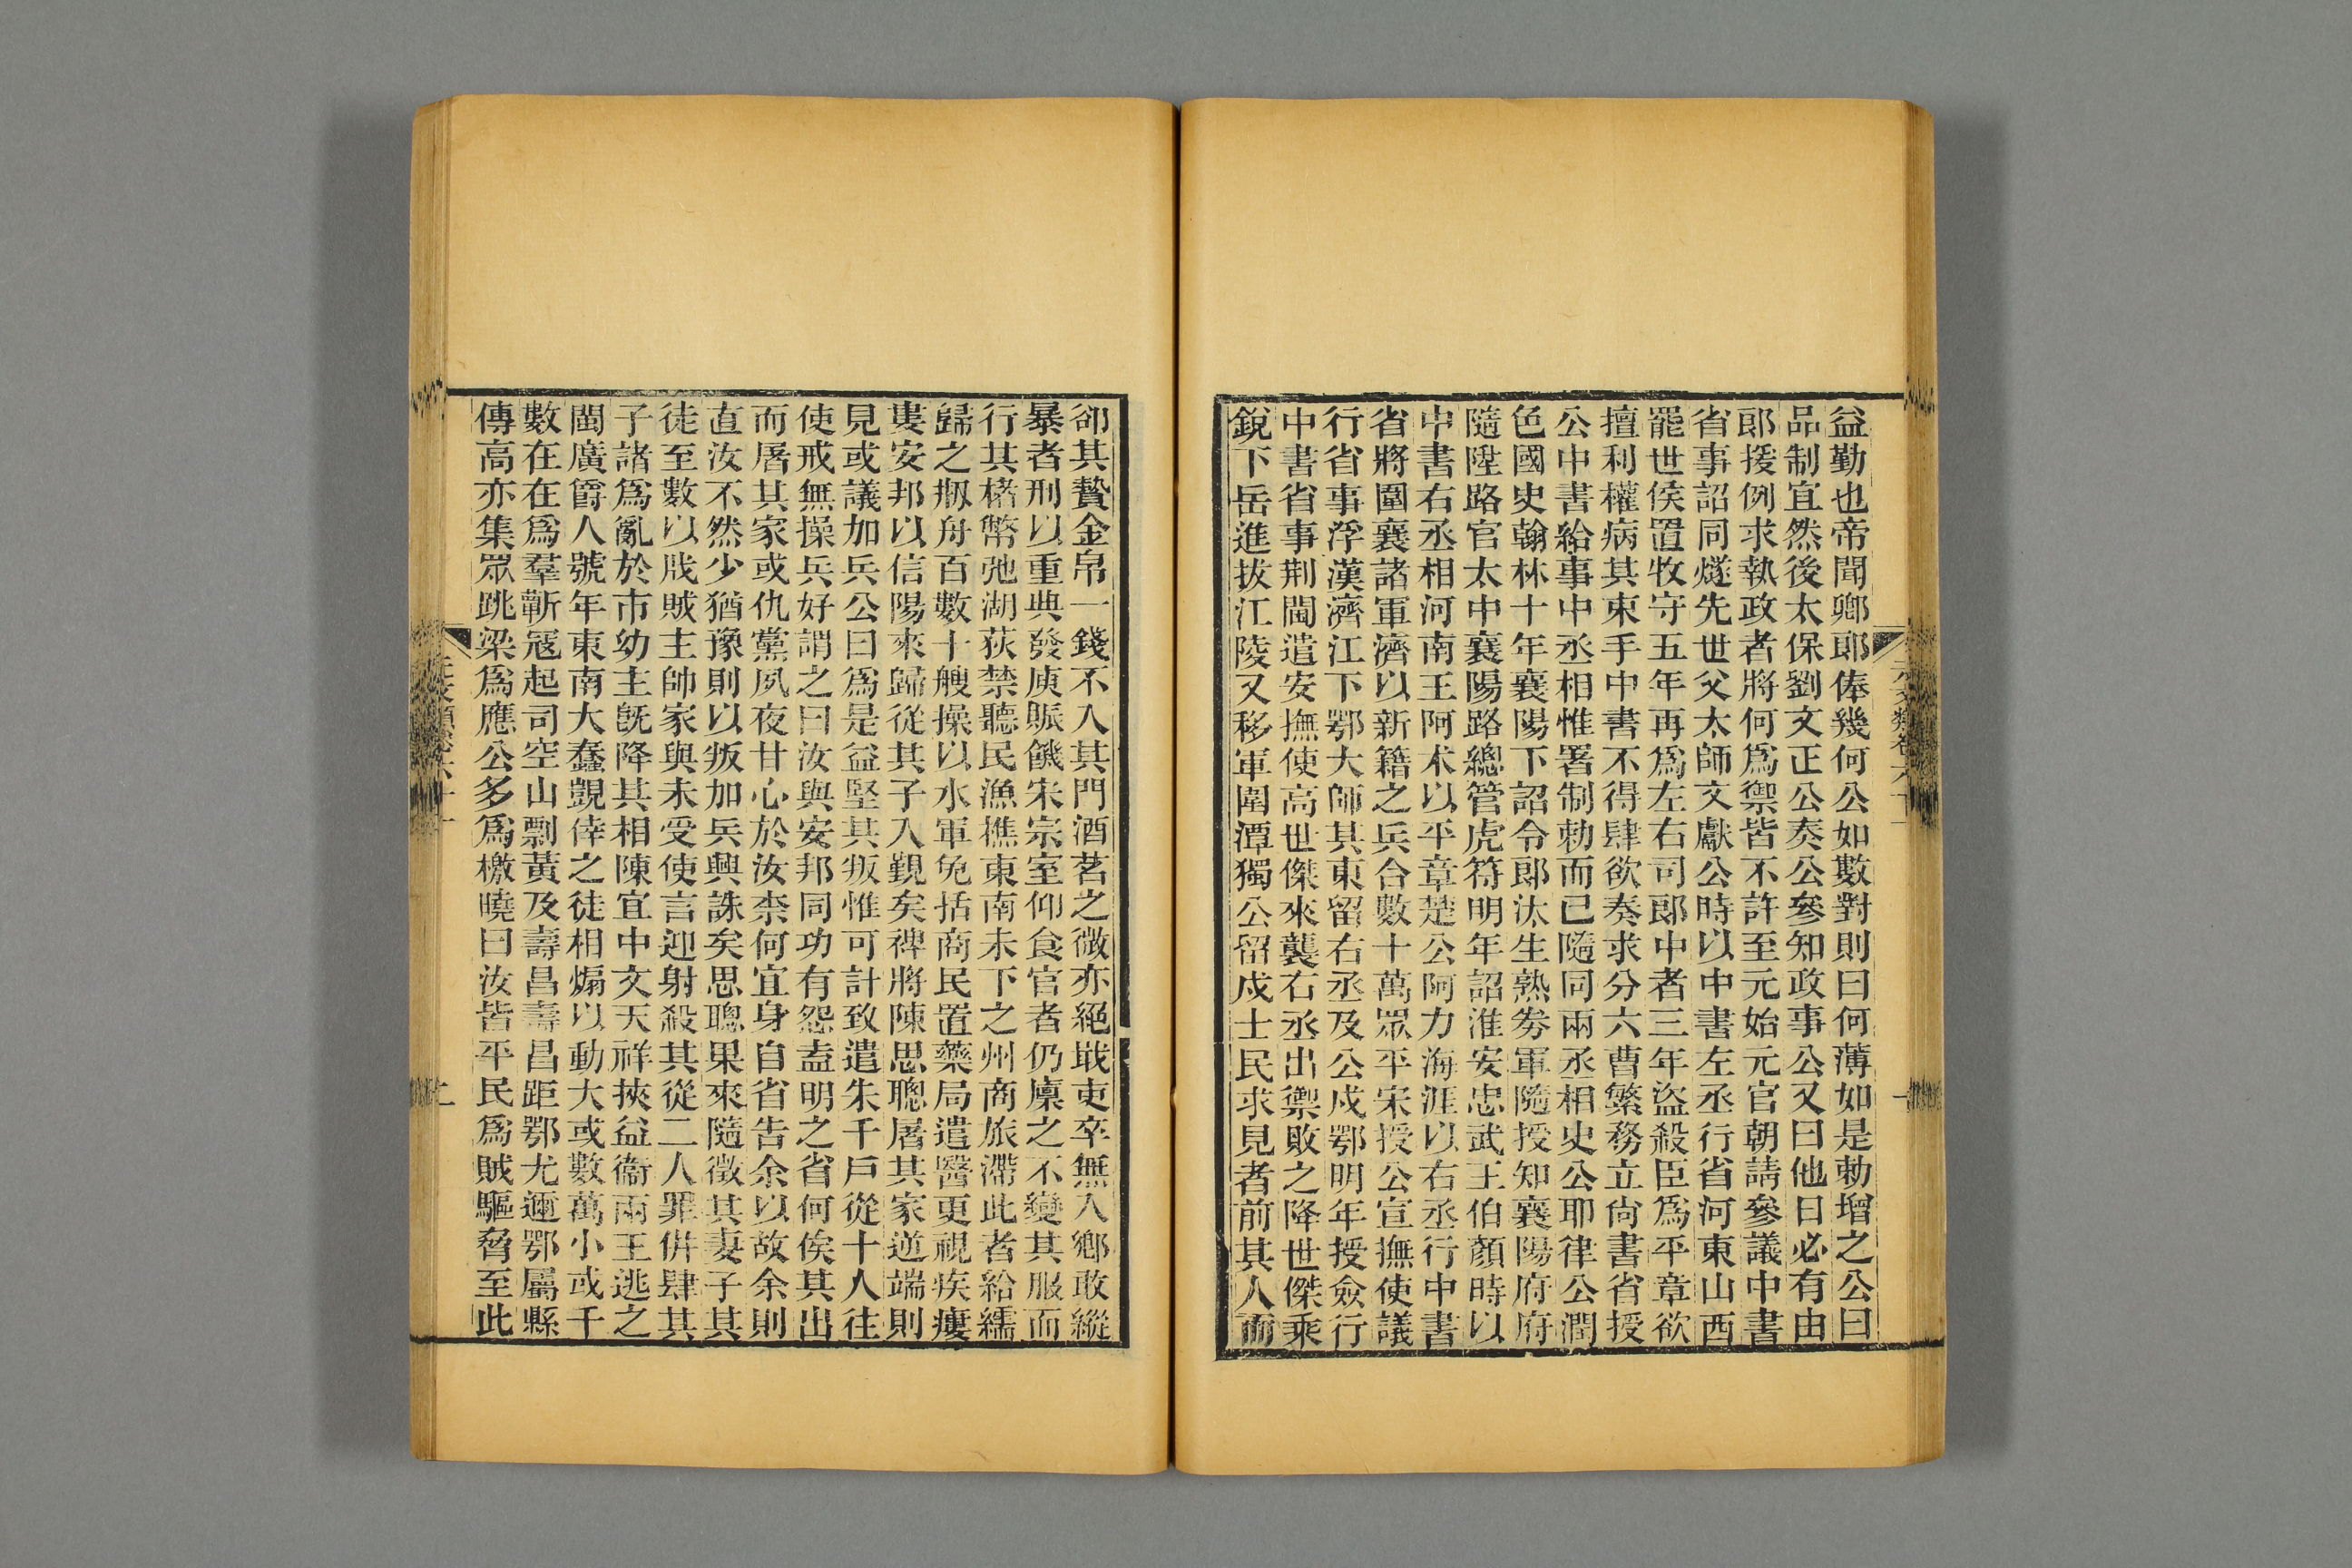 益勤也帝聞鄕郞俸幾何公如數對則曰何薄如是勅增之公曰
品制宜然後太保劉文正公奏公參知政事公又曰他日必有由
郞援例求執政者將何爲禦皆不許至元始元官朝請參議中書
省事詔同燧先世父太師文獻公時以中書左丞行省河東山西
罷世侯置牧守五年再爲左右司郞中者三年盜殺臣爲平章欲
擅利權病其束手中書不得肆欲奏求分六曹繁務立尙書省授
公中書給事中丞相惟署制勅而已隨同兩丞相史公耶律公潤
色國史翰林十年襄陽下詔令郞汰生熟劵軍隨授知襄陽府府
隨陞路官太中襄陽路總管虎符明年詔淮安忠武王伯顏時以
中書右丞相河南王阿术以平章楚公阿力海涯以右丞行中書
省將圍襄諸軍濟以新籍之兵合數十萬眾平宋授公宣撫使議
行省事浮漢濟江下鄂大師其東留右丞及公戍鄂明年授僉行
中書省事荆閫遣安撫使高世傑來襲右丞出禦敗之降世傑乘
銳下岳進拔江陵又移軍圍潭獨公留戍士民求見者前其人而
卻其贄金帛一錢不入其門酒茗之微亦絕戢吏卒無入鄕敢縱
暴者刑以重典發庾賑饑宋宗室仰食官者仍廩之不變其服而
行其楮幣弛湖荻禁聽民漁樵東南未下之州商旅滯此者給繻
歸之捌舟百數十艘操以水軍免括商民置藥局遣醫更視疾瘻
婁安邦以信陽來歸從其子入覲矣裨將陳思聰屠其家逆端則
見或議加兵公曰爲是益堅其叛惟可計致遣朱千戶從十人往
使戒無操兵好謂之曰汝與安邦同功有怨盍明之省何俟其出
而屠其家或仇黨夙夜甘心於汝柰何宜身自省告余以故余則
直汝不然少猶豫則以叛加兵興誅矣思聰果來隨徵其妻子其
徒至數以戕賊主帥家與未受使言迎射殺其從二人罪併肆其
子諸爲亂於市幼主旣降其相陳宜中文天祥挾益衞兩王逃之
閩廣爵人號年東南大蠢覬倖之徒相煽以動大或數萬小或千
數在在爲羣蘄寇起司空山剽黃及壽昌壽昌距鄂尤邇鄂屬縣
傳高亦集眾跳梁爲應公多爲檄曉曰汝皆平民爲賊驅脅至此